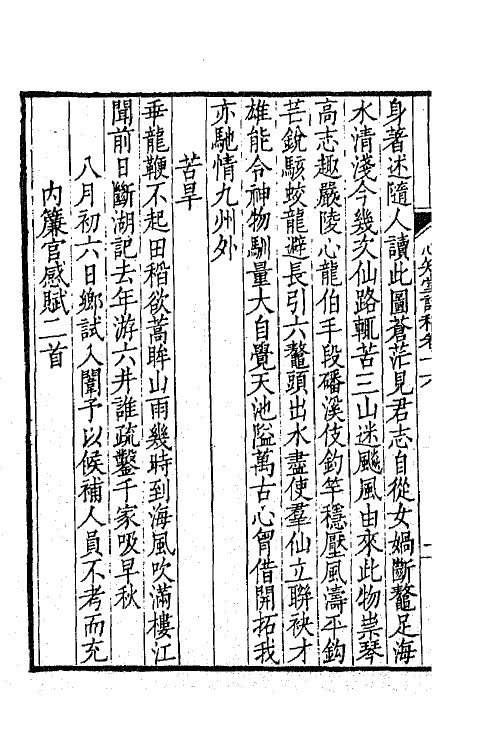 身著述隨人讀此圖蒼茫見君志自從女媧斷鼇足海
水清淺今幾次仙路輒苦三山迷颷風由來此物祟琴
高志趣嚴陵心龍伯手段磻溪伎釣竿穩壓風濤平鈎
芒銳駭蛟龍避長引六鼇頭出水盡使羣仙立聯袂才
雄能令神物馴量大自覺天池隘萬古心胷借開拓我
亦馳情九州外
苦旱
垂龍鞭不起田稻欲蒿眸山雨幾時到海風吹滿樓江
聞前日斷湖記去年游六井誰疏鑿千家吸早秋
八月初六日鄉試入闈予以候補人員不考而充
內簾官感賦二首
心知堂詩稿卷十六